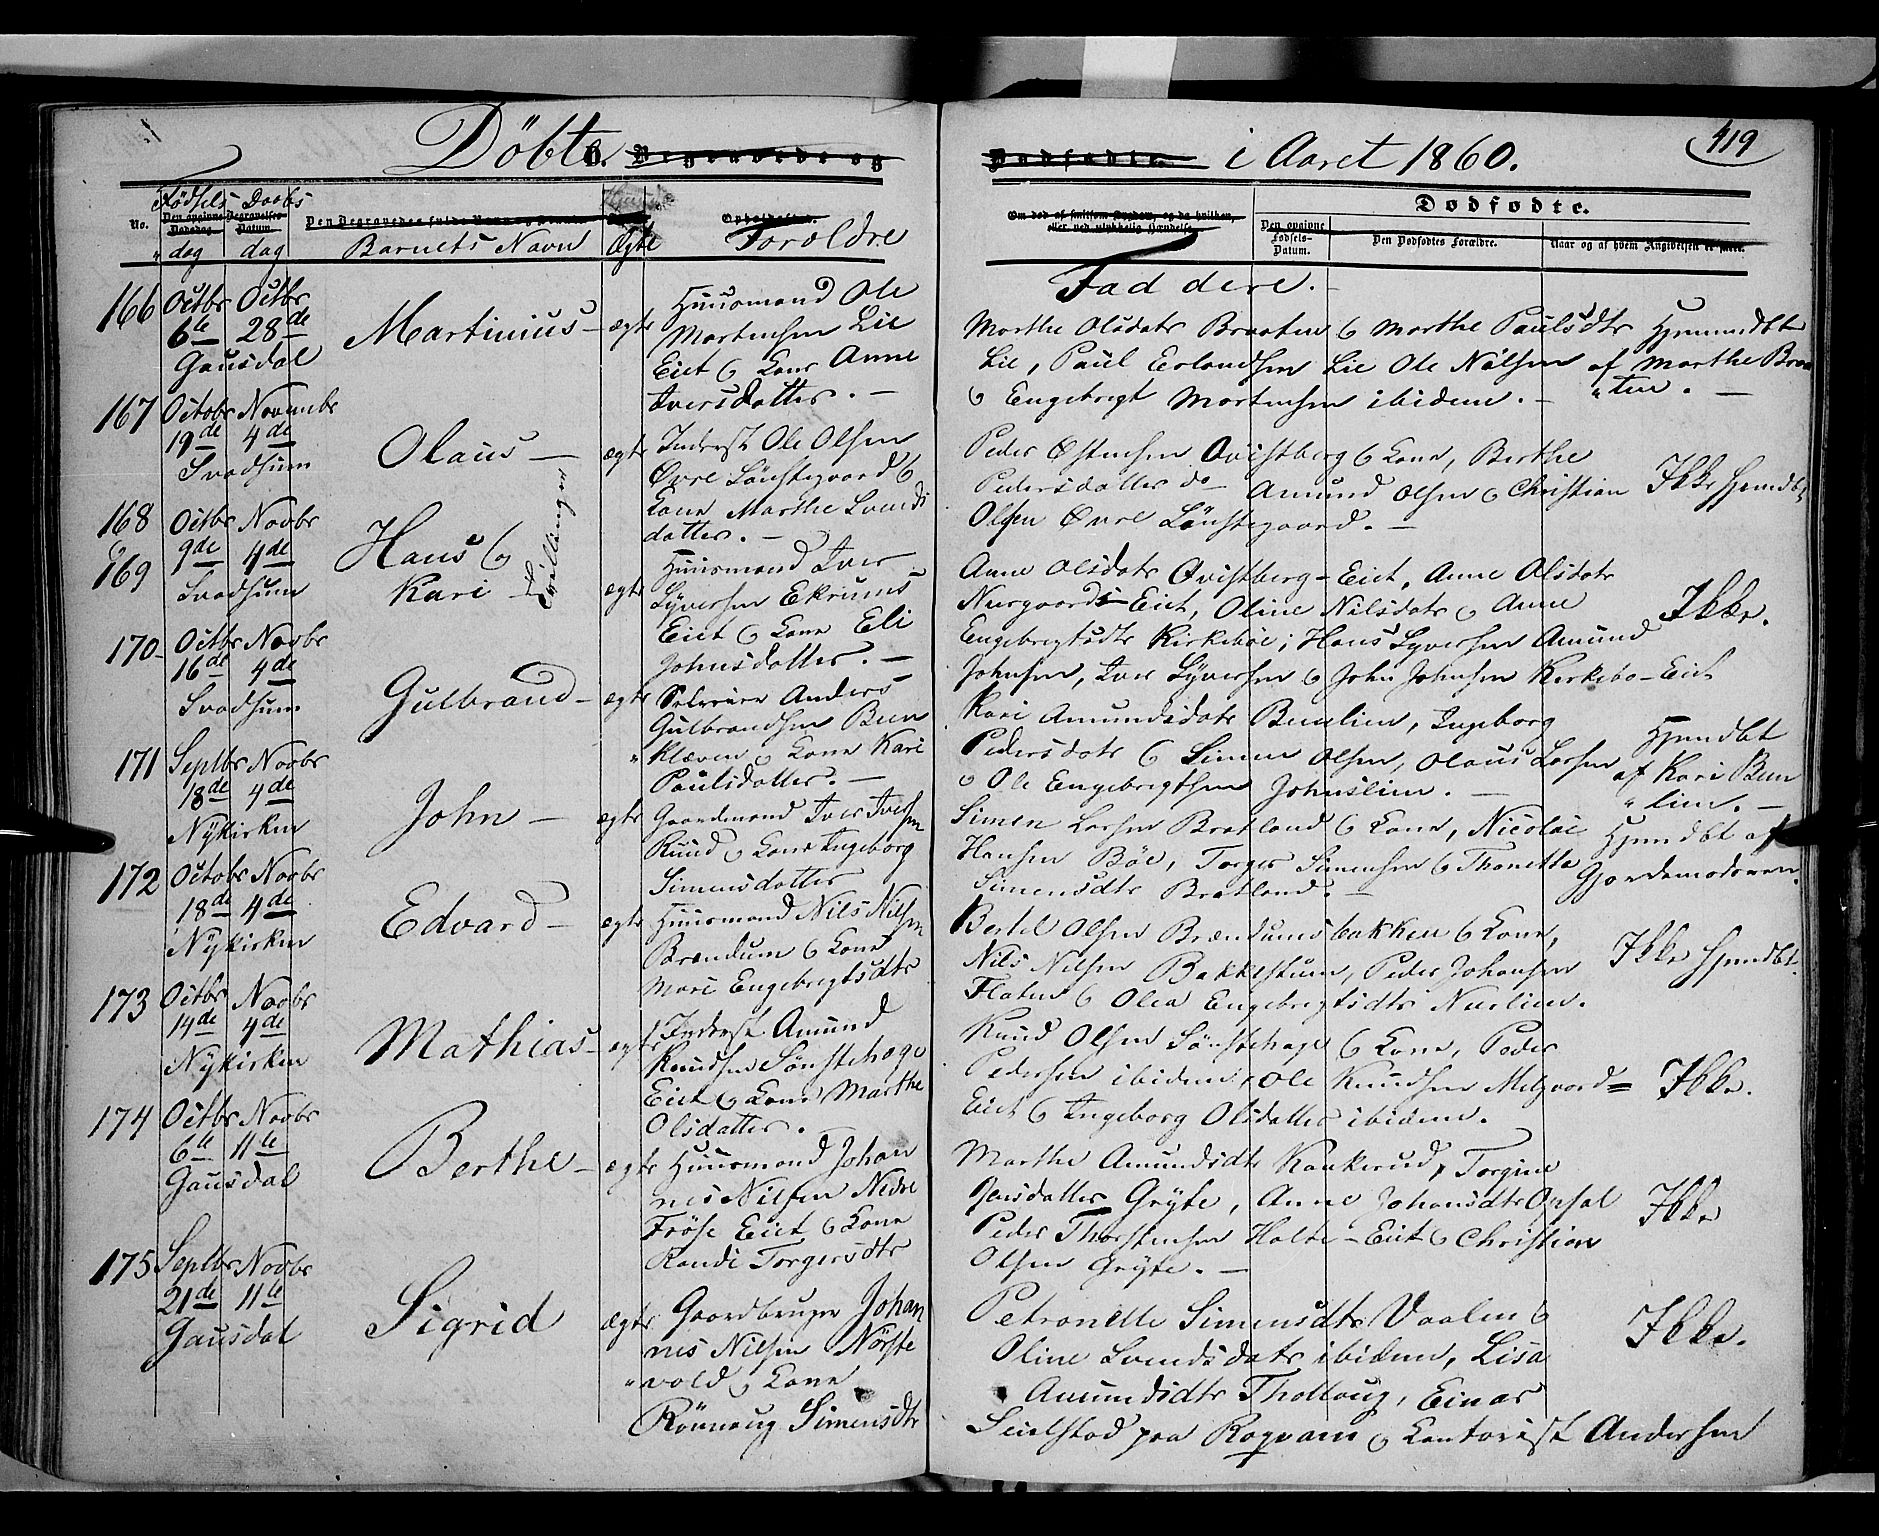 Döbte i Aaret 1860.
419
No.
Fødsels dag
Daabs dag
Barnets Navn
Ægte
Forældre
Faddere.
Dødfødte.
Den opgivne Fødsels-Datum.
Den Dødfødtes Forældre.
166 Octbr 6te Octbr 28de
Gausdal
Martinius - ægte
Huusmand Ole
Mortensen Lie
Eiet & Kone Anne
Iversdatter. -
Marthe Olsdatr Braaten & Marthe Paulsdtr
Lie, Paul Erlandsen Lie Ole Nilsen
& Engebregt Mortensen ibidem. -
Hjemmedbt
af Marthe Braa
"ten. -
167 Octobr 19de Novembr 4de
Svadsum
Olaus - ægte
Inderst Ole Olsen
Øvre Lönstegaard &
Kone Marthe Svends
datter. -
Peder Østensen Qvistberg & Kone, Berthe
Pedersdatter do - Amund Olsen & Christian
Olsen Øvre Lönstegaard. -
Ikke Hjemdbt
168 & 169 Octbr 9de Novbr 4de
Svadsum
Hans &
Kari - Tvillinger
ægte
Huusmand Iver
Syversen Ekrums
Eiet & Kone Eli
Johnsdatter. -
Anne Olsdatr Qvistberg-Eiet, Anne Olsdatr
Nurgaards-Eiet, Oline Nilsdatr & Anne
Engebregtsdtr Kirkeböe; Hans Syversen Amund
Johnsen, Iver Syversen & John Johnsen Kirkebø-Eiet
Ikke.
170 - Octbr 16de Novbr 4de
Svadsum
Gulbrand - ægte
Anders
Gulbrandsen Buen
"klæven & Kone Kari
Paulsdatter. -
Kari Amundsdatr Buelien, Ingeborg
Pedersdatr & Simen Olsen, Olaus Larsen
& Ole Engebregtsen Johnslien. -
Hjemdbt
af Kari Buen
"lien. -
171 Septbr 18de Novbr 4de
Nykirken
John - ægte
Gaardmand Iver Iversen
Ruud & Kone Ingeborg
Simensdatter
Simen Larsen Bratland & Kone, Nicolai
Hansen Böe, Torger Simensen & Thonette
Simensdtr Bratland. -
Hjemdbt af
Gjordemoderen.
172 Octobr 18de Novbr 4de
Nykirken
Edvard - ægte
Huusmand Nils Nilsen
Brændum & Kone
Mari Engebregtsdtr
Bertel Olsen Brændumsbakken & Kone,
Nils Nilsen Bakkestuen, Peder Johansen
Flaten & Olea Engebregtsdtr Nurlien.
Ikke Hjemdbt.
173 Octbr 14de Novbr 4de
Nykirken
Mathias - ægte
Inderst Amund
Knudsen Sönstehage
Eiet & Kone Marthe
Olsdatter.
Knud Olsen Sönstehage & Kone, Peder
Pedersen ibidem, Ole Knudsen Melgaard=
Eiet & Ingeborg Olsdatter ibidem.
Ikke.
174 Octbr 6te Novbr 11te
Gausdal
Berthe - ægte
Huusmand Johan
nes Nilsen Nedre
Fröse Eiet & Kone
Randi Torgersdtr
Marthe Amundsdtr Kankerud, Torgine
Jensdatter Gryte, Anne Johansdtr Opsal
Peder Thorstensen Holte-Eiet & Christian
Olsen Gryte. -
Ikke
175 Septbr 21de Novbr 11te
Gausdal
Sigrid ægte
Gaardbruger Johan
nes Nilsen Nörste
"vold & Kone
Rönnaug Simensdtr
Petronelle Simensdtr Vaalen &
Oline Svendsdatr ibidem, Lisa
Amundsdtr Thollaug, Einar
Seielstad paa Rogvam & Kontorist Andersen
Ikke.